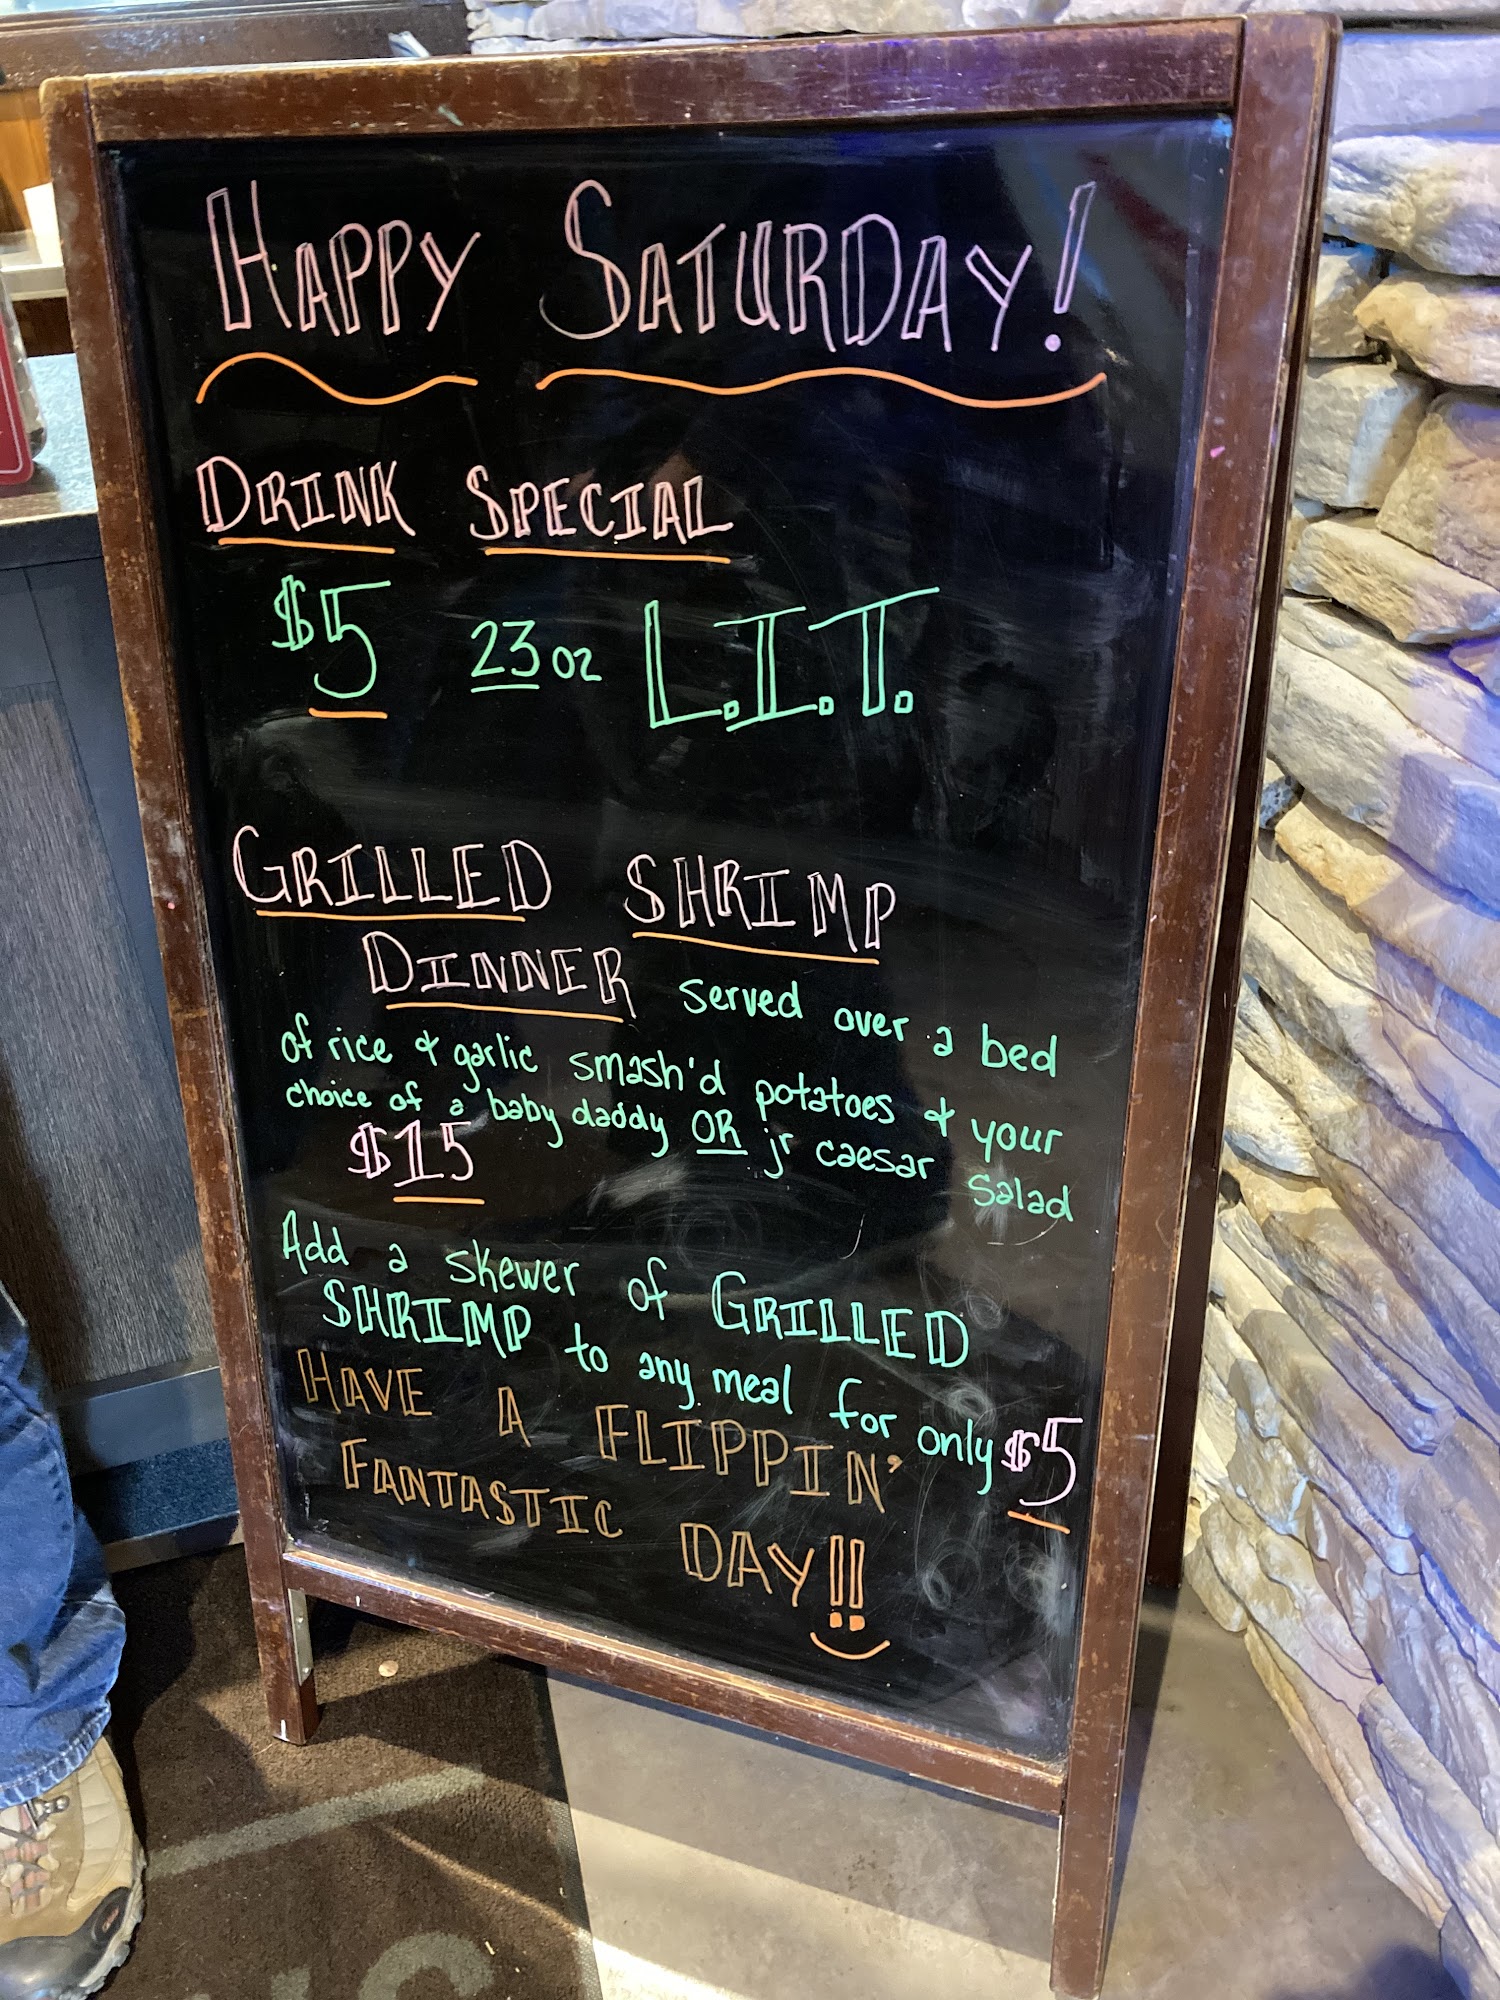 HAPPY SATURDAY!
DRINK SPECIAL
$5 23oz L.I.T.
GRILLED SHRIMP
DINNER served over a bed
of rice & garlic smash'd potatoes & your
choice of a baby daddy OR jr caesar salad
$15
Add a skewer of GRILLED
SHRIMP to any meal for only $5
HAVE A FLIPPIN'
FANTASTIC DAY!!